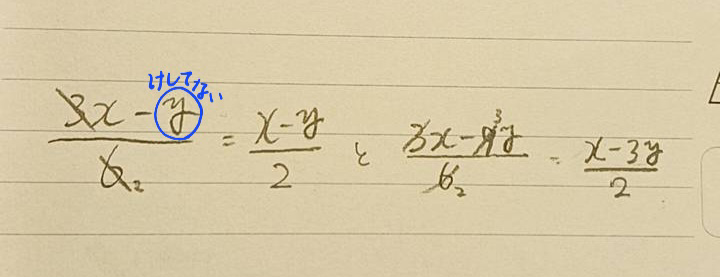 けしてない
(3x-y)/6 2 = (x-y)/2 と (3x-9 3y)/6 2 = (x-3y)/2